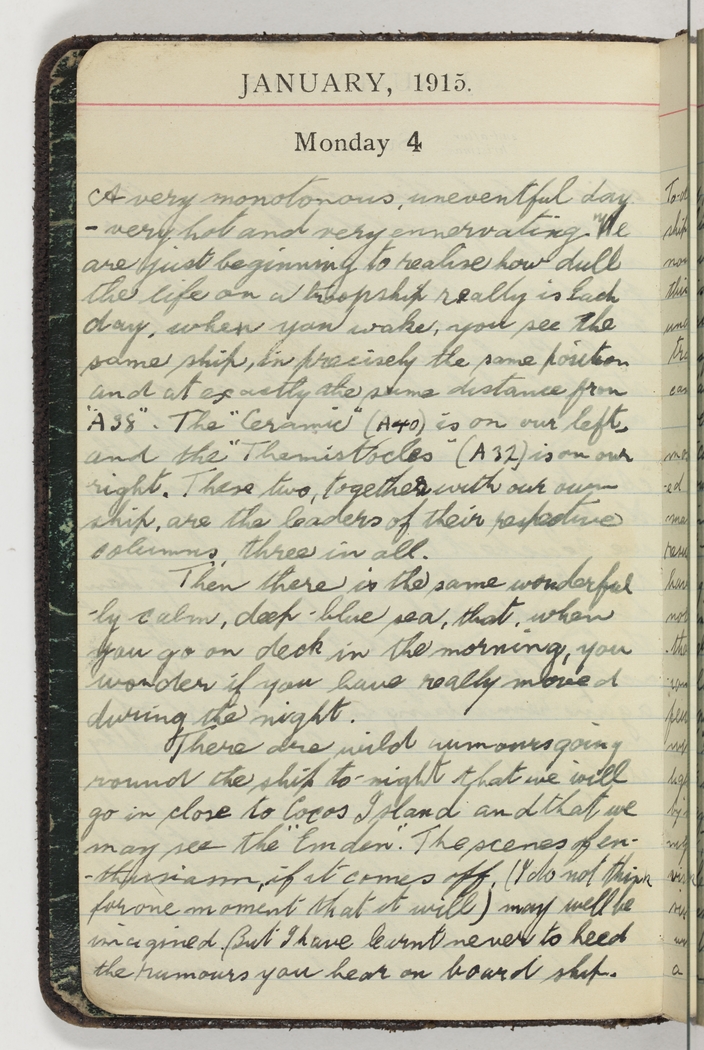 JANUARY, 1915.
Monday 4
A very monotonous, uneventful day
- very hot and very ennervating. We
are just beginning to realise how dull
the life on a troopship really is. Each
day, when you wake, you see the
same ship, in precisely the same position
and at exactly the same distance from
"A38". The "Ceramic" (A40) is on our left,
and the "Themistocles" (A32) is on our
right. These two, together with our own
ship, are the leaders of their respective
columns, three in all.
Then there is the same wonderful
-ly calm, deep-blue sea, that, when
you go on deck in the morning, you
wonder if you have really moved
during the night.
There are wild rumours going
round the ship to-night that we will
go in close to Cocos Island and that we
may see the "Emden". The scenes of en-
-thusiasm, if it comes off, (I do not think
for one moment that it will) may well be
imagined. But I have learnt never to heed
the rumours you hear on board ship.